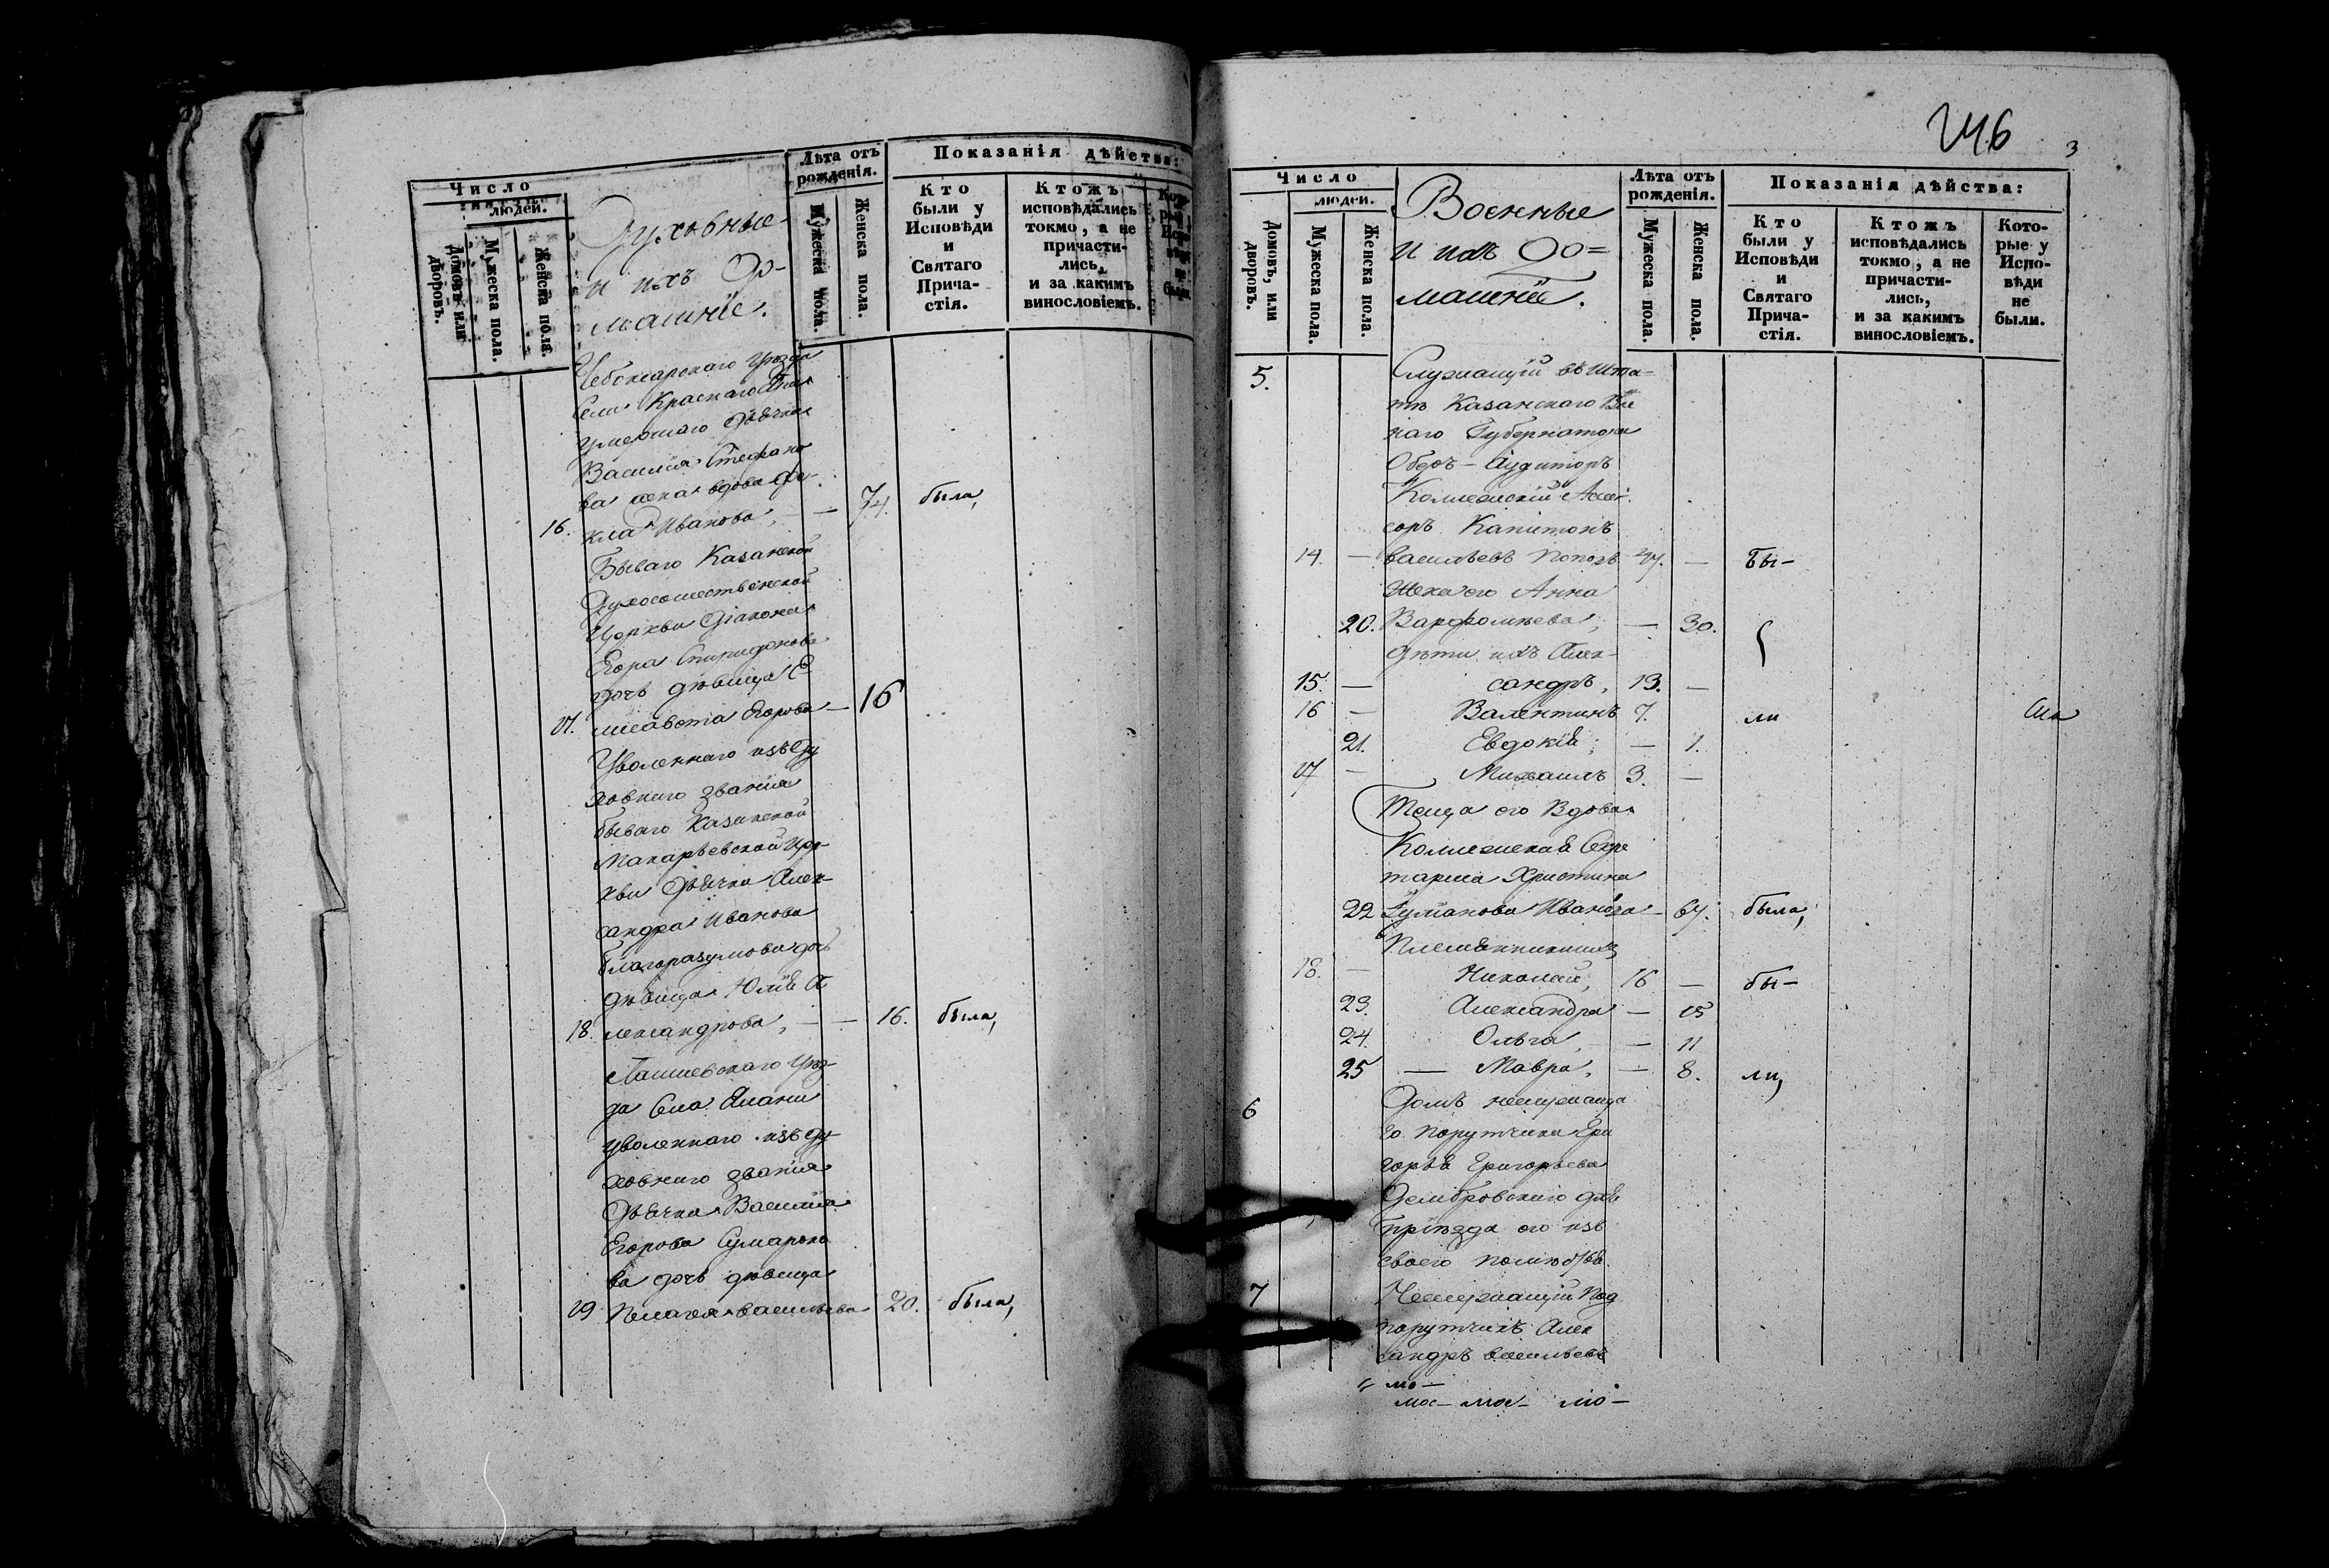 Число
людей.
Домовъ или дворовъ.
Мужеска пола.
Женска пола.
Духовные
и ихъ До-
машніе.
Лѣта отъ рожденія.
Мужеска пола.
Женска пола.
Показанія дѣйства:
Кто были у Исповѣди и Святаго Прича-стія.
Ктожъ исповѣдались токмо, а не причасти-лись, и за какимъ винословіемъ.
Чебоксарскаго уѣзда
Села Краснаго
умершаго дьячка
Василія Стефано
ва жена вдова Фе-
16. кла Иванова, — — 74. была,
Бываго Казанской
Духосошественской
Церкви Діакона
Егора Спиридонова
дочь дѣвица Е
17. лисавета Егорова — 16
Уволеннаго изъ Ду
ховнаго званія
бываго Казанской
Макарьевской Цер-
кви Дьячка Алек-
сандра Иванова
Благоразумова дочь
дѣвица Юлія А
18. лександрова, — — 16. была,
Лаишевскаго уѣз-
да Села Алани
уволеннаго изъ Ду-
ховнаго званія
Дьячка Василія
Егорова Сумароко
ва дочь дѣвица
19 Пелагея Васильева 20. была,
246
3
Число
людей.
Домовъ, или дворовъ.
Мужеска пола.
Женска пола.
Военные
и ихъ До=
машніе.
Лѣта отъ рожденія.
Мужеска пола.
Женска пола.
Показанія дѣйства:
Кто были у Исповѣди и Святаго Прича-стія.
Ктожъ исповѣдались токмо, а не причасти-лись, и за какимъ винословіемъ.
Кото-рые у Испо-вѣди не были.
5. Служащій въ шта-
тѣ Казанскаго Вое
наго Губернатора
Оберъ-Аудиторъ
Коллежскій Ассес
соръ Капитонъ
14. — Васильевъ Поповъ 47. — бы-
Жена его Анна
20. Варфоломѣева, — 30.
Дѣти ихъ Алек-
15. — сандръ, 13. —
16 — Валентинъ 7. ли
21. Евдокія; — 1.
17 — Михаилъ 3. —
Теща его Вдова
Коллежская Секре
тарша Христина
22 Иванова — 67. была,
Племянники
18. — Николай, 16 — бы-
23. Александра — 15
24. Ольга, — 11
25 — Мавра, — 8. ли,
6 Домъ неслужаща
го Порутчика Гри
горья Григорьева
Дембровскаго для
пріѣзда его изъ
своего помѣстья.
7 Неслужащій Под
порутчикъ Алек
сандръ Васильевъ